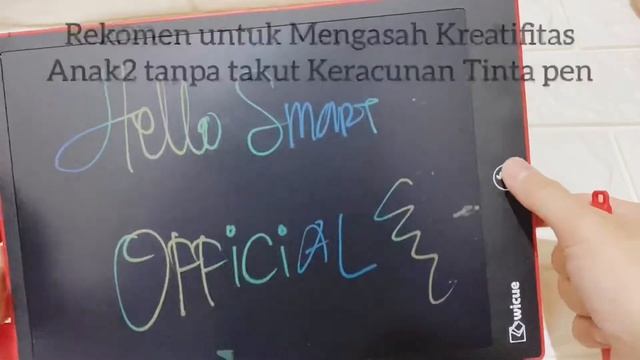 Rekomen untuk Mengasah Kreatifitas
Anak2 tanpa takut Keracunan Tinta pen
Hello Smart
OFFiCiAL
wicue